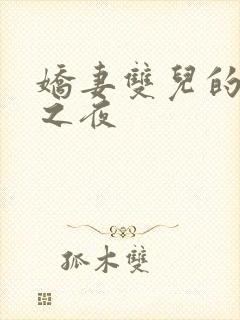 嬌妻雙兒的
之夜
孤木雙